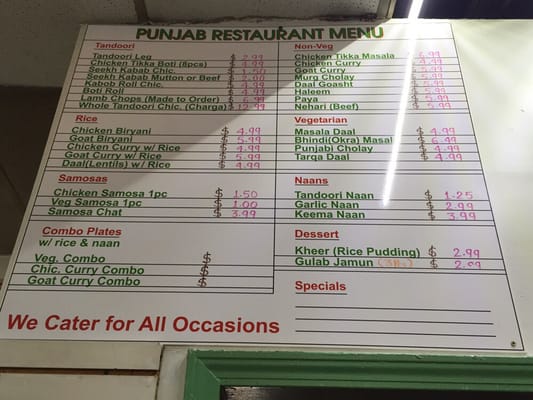 PUNJAB RESTAURANT MENU
Tandoori
Tandoori Leg $ 2.99
Chicken Tikka Boti (8pcs) $ 4.99
Seekh Kabab Chic. $ 1.50
Seekh Kabab Mutton or Beef $ 2.00
Kabab Roll Chic. $ 4.99
Boti Roll $ 4.99
Lamb Chops (Made to Order) $ 6.99
Whole Tandoori Chic. (Charga) $ 12.99
Rice
Chicken Biryani $ 4.99
Goat Biryani $ 5.99
Chicken Curry w/ Rice $ 4.99
Goat Curry w/ Rice $ 5.99
Daal(Lentils) w/ Rice $ 4.99
Samosas
Chicken Samosa 1pc $ 1.50
Veg Samosa 1pc $ 1.00
Samosa Chat $ 3.99
Combo Plates
w/ rice & naan
Veg. Combo $
Chic. Curry Combo $
Goat Curry Combo $
Non-Veg
Chicken Tikka Masala $ 6.99
Chicken Curry $ 4.99
Goat Curry $ 5.99
Murg Cholay $ 5.99
Daal Goasht $ 5.99
Haleem $ 5.99
Paya $ 5.99
Nehari (Beef) $ 5.99
Vegetarian
Masala Daal $ 4.99
Bhindi(Okra) Masala $ 6.99
Punjabi Cholay $ 4.99
Tarqa Daal $ 4.99
Naans
Tandoori Naan $ 1.25
Garlic Naan $ 2.99
Keema Naan $ 3.99
Dessert
Kheer (Rice Pudding) $ 2.99
Gulab Jamun $ 2.99
Specials
We Cater for All Occasions